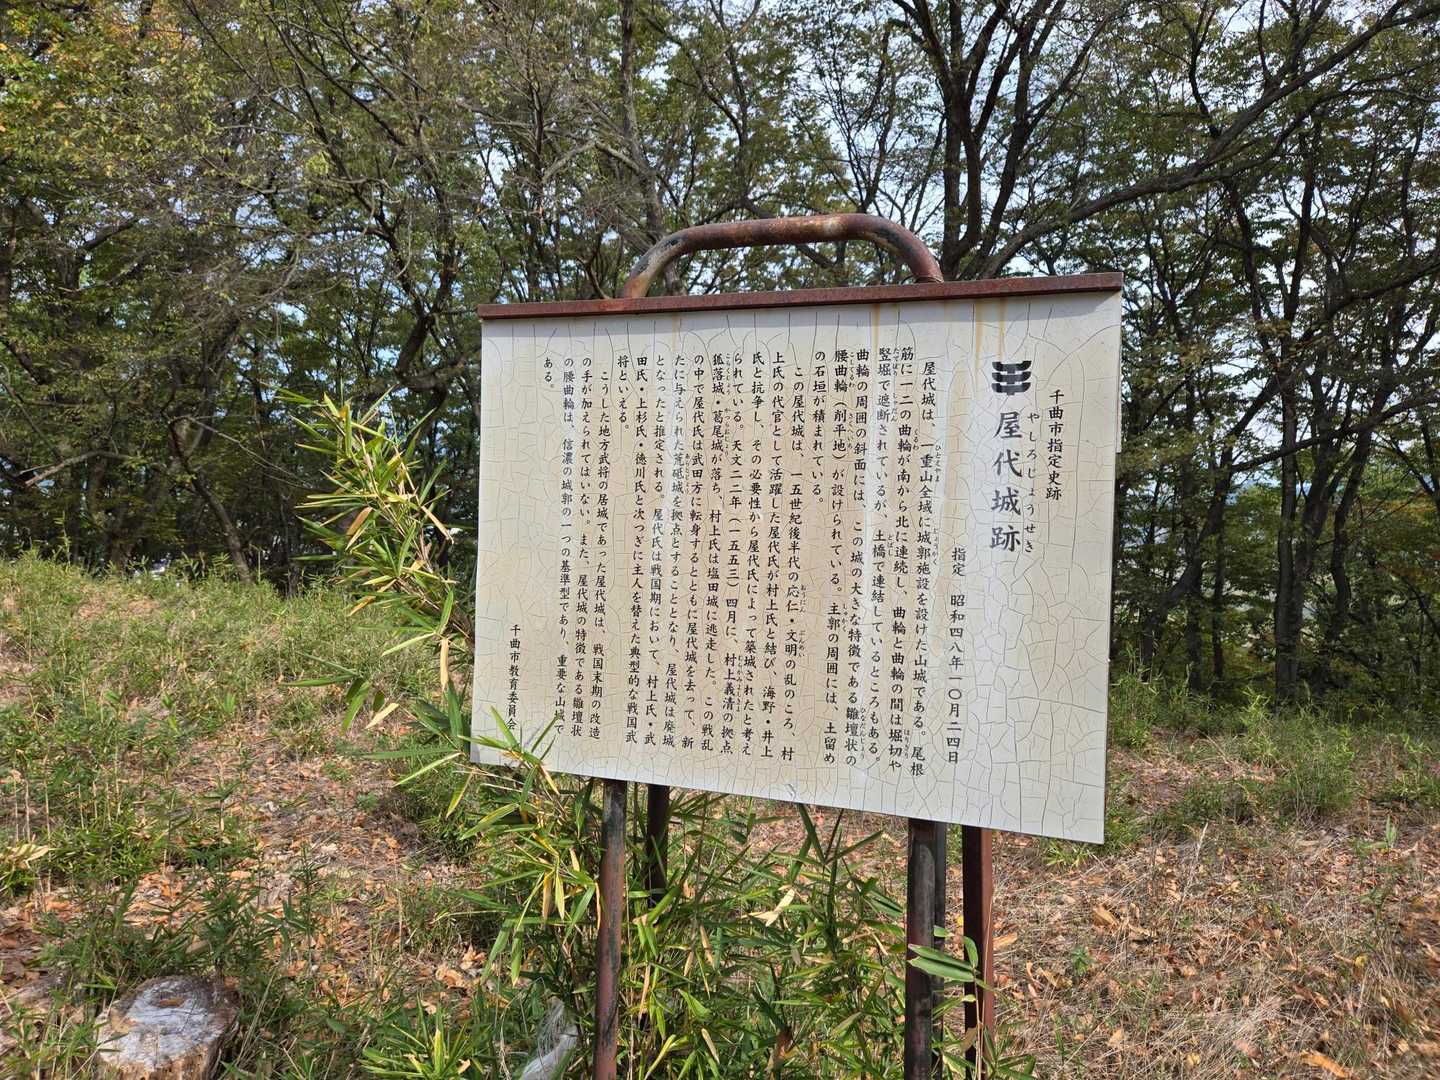 千曲市指定史跡
やしろじょうせき
屋代城跡
指定 昭和四八年一〇月二四日
屋代城は、一重山全域に城郭施設を設けた山城である。尾根
筋に一二の曲輪が南から北に連続し、曲輪と曲輪の間は堀切や
竪堀で遮断されているが、土橋で連結しているところもある。
曲輪の周囲の斜面には、この城の大きな特徴である雛壇状の
腰曲輪（削平地）が設けられている。主郭の周囲には、土留め
の石垣が積まれている。
この屋代城は、一五世紀後半代の応仁・文明の乱のころ、村
上氏の代官として活躍した屋代氏が村上氏と結び、海野・井上
氏と抗争し、その必要性から屋代氏によって築城されたと考え
られている。天文二二年（一五五三）四月に、村上義清の拠点
狐落城・葛尾城が落ち、村上氏は塩田城に逃走した。この戦乱
の中で屋代氏は武田方に転身するとともに屋代城を去って、新
たに与えられた荒砥城を拠点とすることとなり、屋代城は廃城
となったと推定される。屋代氏は戦国期において、村上氏・武
田氏・上杉氏・徳川氏と次つぎに主人を替えた典型的な戦国武
将といえる。
こうした地方武将の居城であった屋代城は、戦国末期の改造
の手が加えられてはいない。また、屋代城の特徴である雛壇状
の腰曲輪は、信濃の城郭の一つの基準型であり、重要な山城で
ある。
千曲市教育委員会